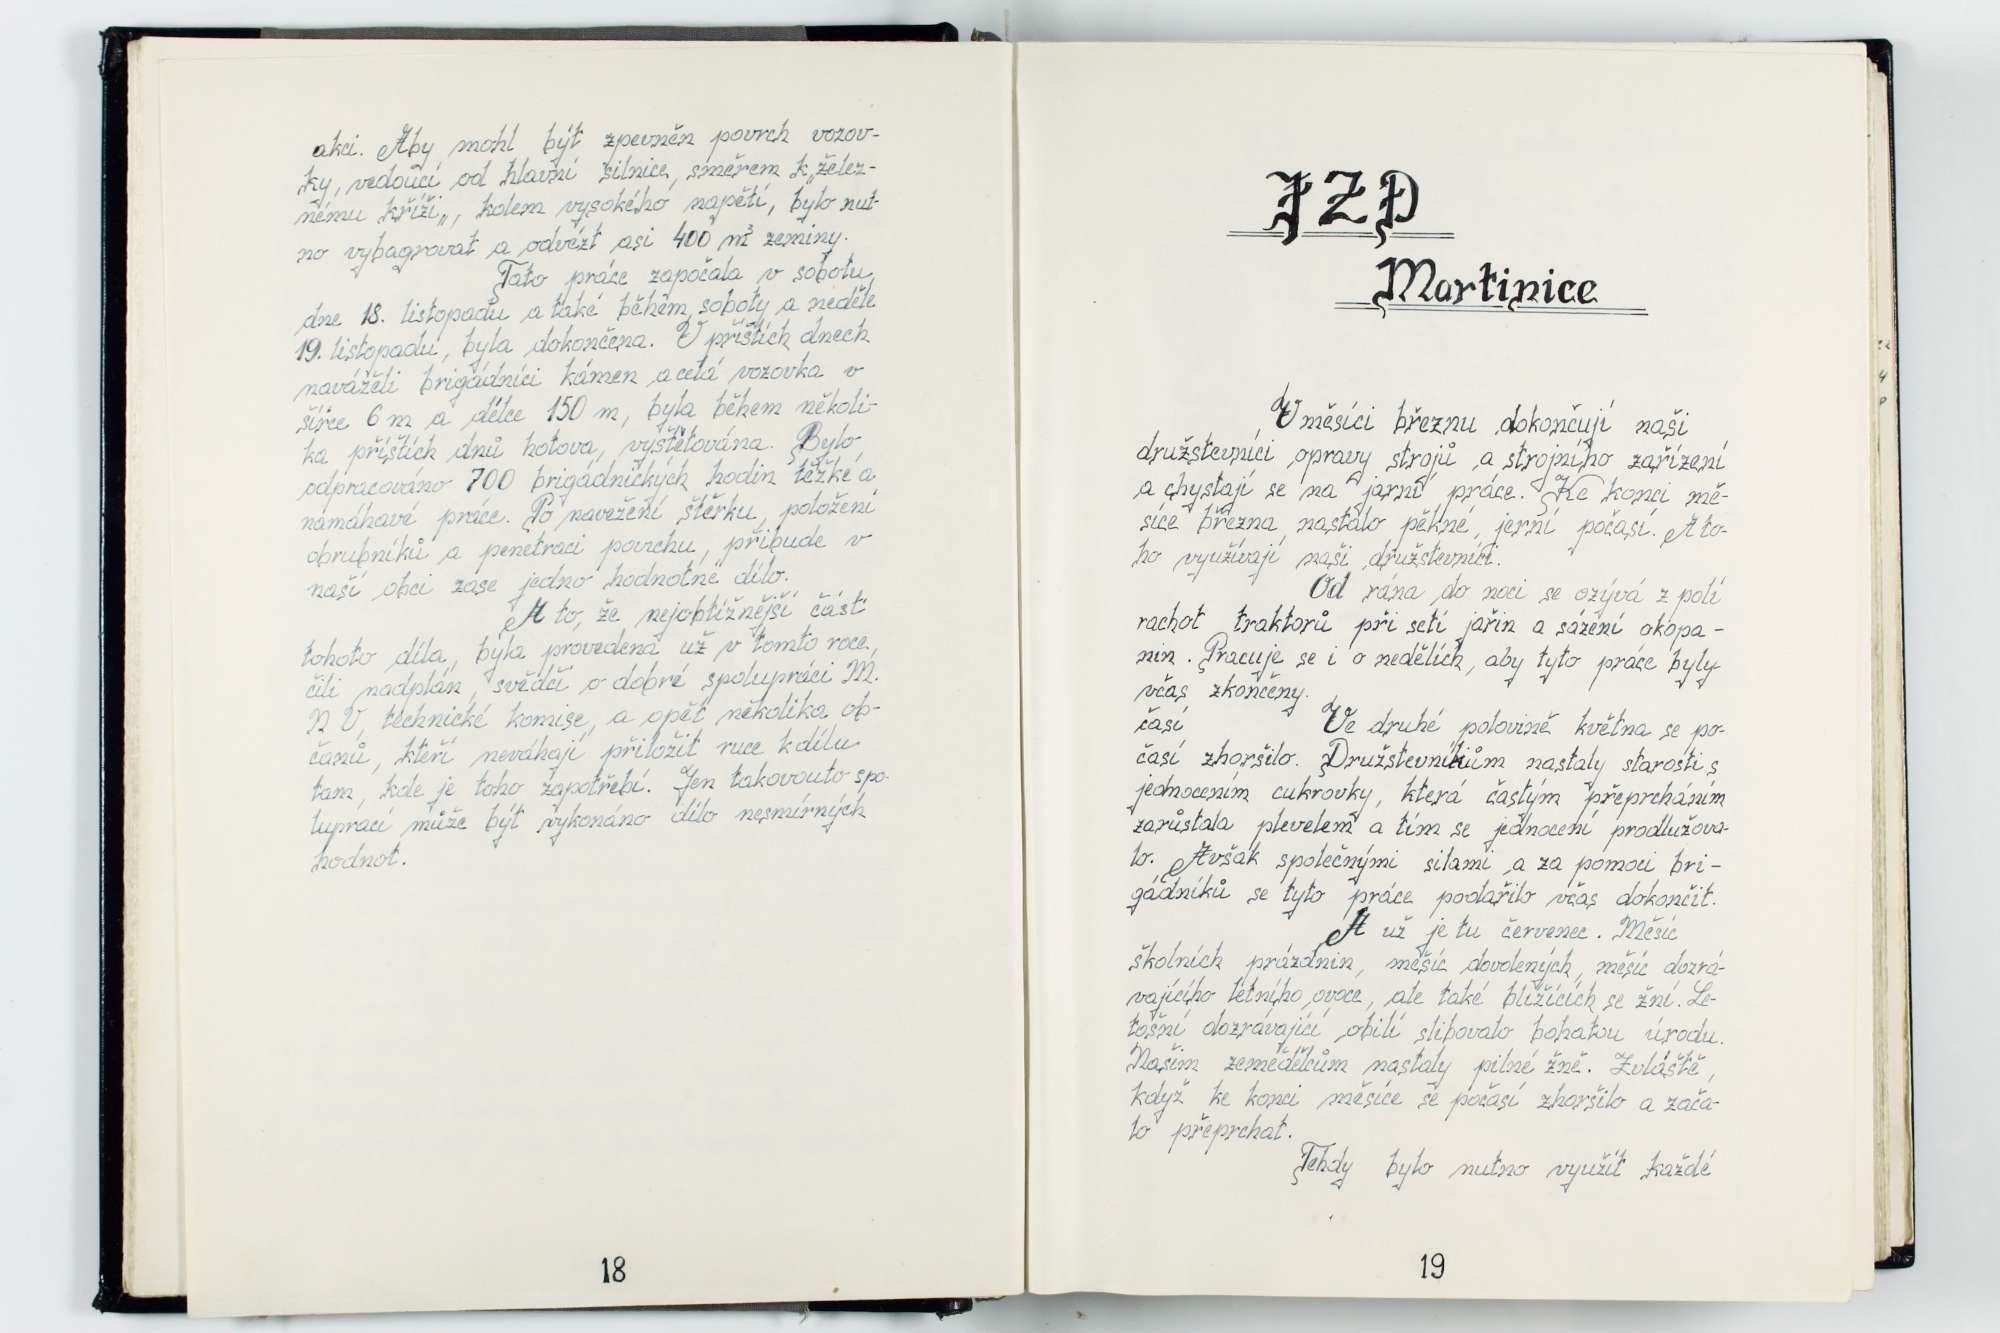 akci. Aby mohl být zpevněn povrch vozov-
ky, vedoucí od hlavní silnice, směrem k„želez-
nému kříži„, kolem vysokého napětí, bylo nut-
no vybagrovat a odvézt asi 400 m³ zeminy.
Tato práce započala v sobotu,
dne 18. listopadu a také během soboty a neděle
19. listopadu, byla dokončena. V příštích dnech
naváželi brigádníci kámen a celá vozovka v
šířce 6 m a délce 150 m, byla během několi-
ka příštích dnů hotova, vyštětována. Bylo
odpracováno 700 brigádnických hodin těžké a
namáhavé práce. Po navežení štěrku, položení
obrubníků a penetraci povrchu, přibude v
naší obci zase jedno hodnotné dílo.
A to, že nejobtížnější část
tohoto díla, byla provedena už v tomto roce,
čili nadplán, svědčí o dobré spolupráci M.
N V, technické komise, a opět několika ob-
čanů, kteří neváhají přiložit ruce k dílu
tam, kde je toho zapotřebí. Jen takovouto spo-
luprací může být vykonáno dílo nesmírných
hodnot.
18
JZD
Martinice
V měsíci březnu dokončují naši
družstevníci opravy strojů a strojního zařízení
a chystají se na jarní práce. Ke konci mě-
síce března nastalo pěkné, jerní počasí. A to-
ho využívají naši družstevníci.
Od rána do noci se ozývá z polí
rachot traktorů při setí jařin a sázení okopa-
nin. Pracuje se i o nedělích, aby tyto práce byly
včas zkončeny.
časí Ve druhé polovině května se po-
časí zhoršilo. Družstevníkům nastaly starosti s
jednocením cukrovky, která častým přeprcháním
zarůstala plevelem a tím se jednocení prodlužova-
lo. Avšak společnými silami a za pomoci bri-
gádníků se tyto práce podařilo včas dokončit.
A už je tu červenec. Měsíc
školních prázdnin, měsíc dovolených, měsíc dozrá-
vajícího létního ovoce, ale také blížících se žní. Le-
tošní dozrávající obilí slibovalo bohatou úrodu.
Našim zemědělcům nastaly pilné žně. Zvláště,
když ke konci měsíce se počasí zhoršilo a zača-
lo přeprchat.
Tehdy bylo nutno využít každé
19